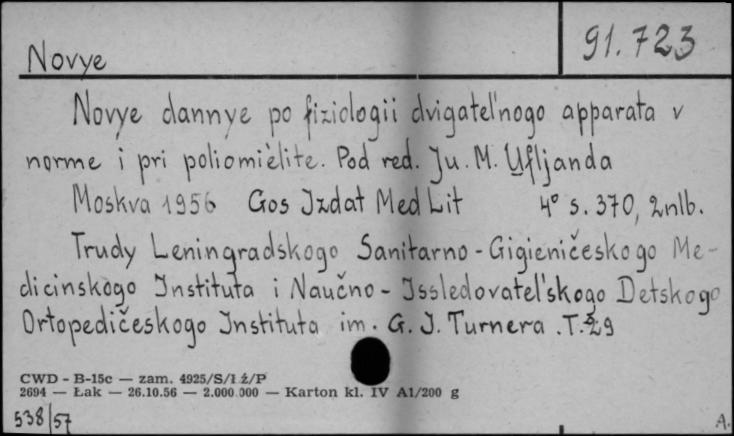 91.723
Novye
Novye dannye po fiziologii dvigatel'nogo apparata v
norme i pri poliomiėlite. Pod red. Ju. M. Ufljanda
Moskva 1956 Gos Izdat Med Lit 4° s. 370, 2nlb.
Trudy Leningradskogo Sanitarno-Gigieničeskogo Me-
dicinskogo Instituta i Naučno-Issledovatel'skogo Detskogo
Ortopedičeskogo Instituta im. G. I. Turnera. T. 29
CWD - B-15c — zam. 4925/S/I ż/P
2694 — Łak — 26.10.56 — 2.000.000 — Karton kl. IV A1/200 g
538/57
A.